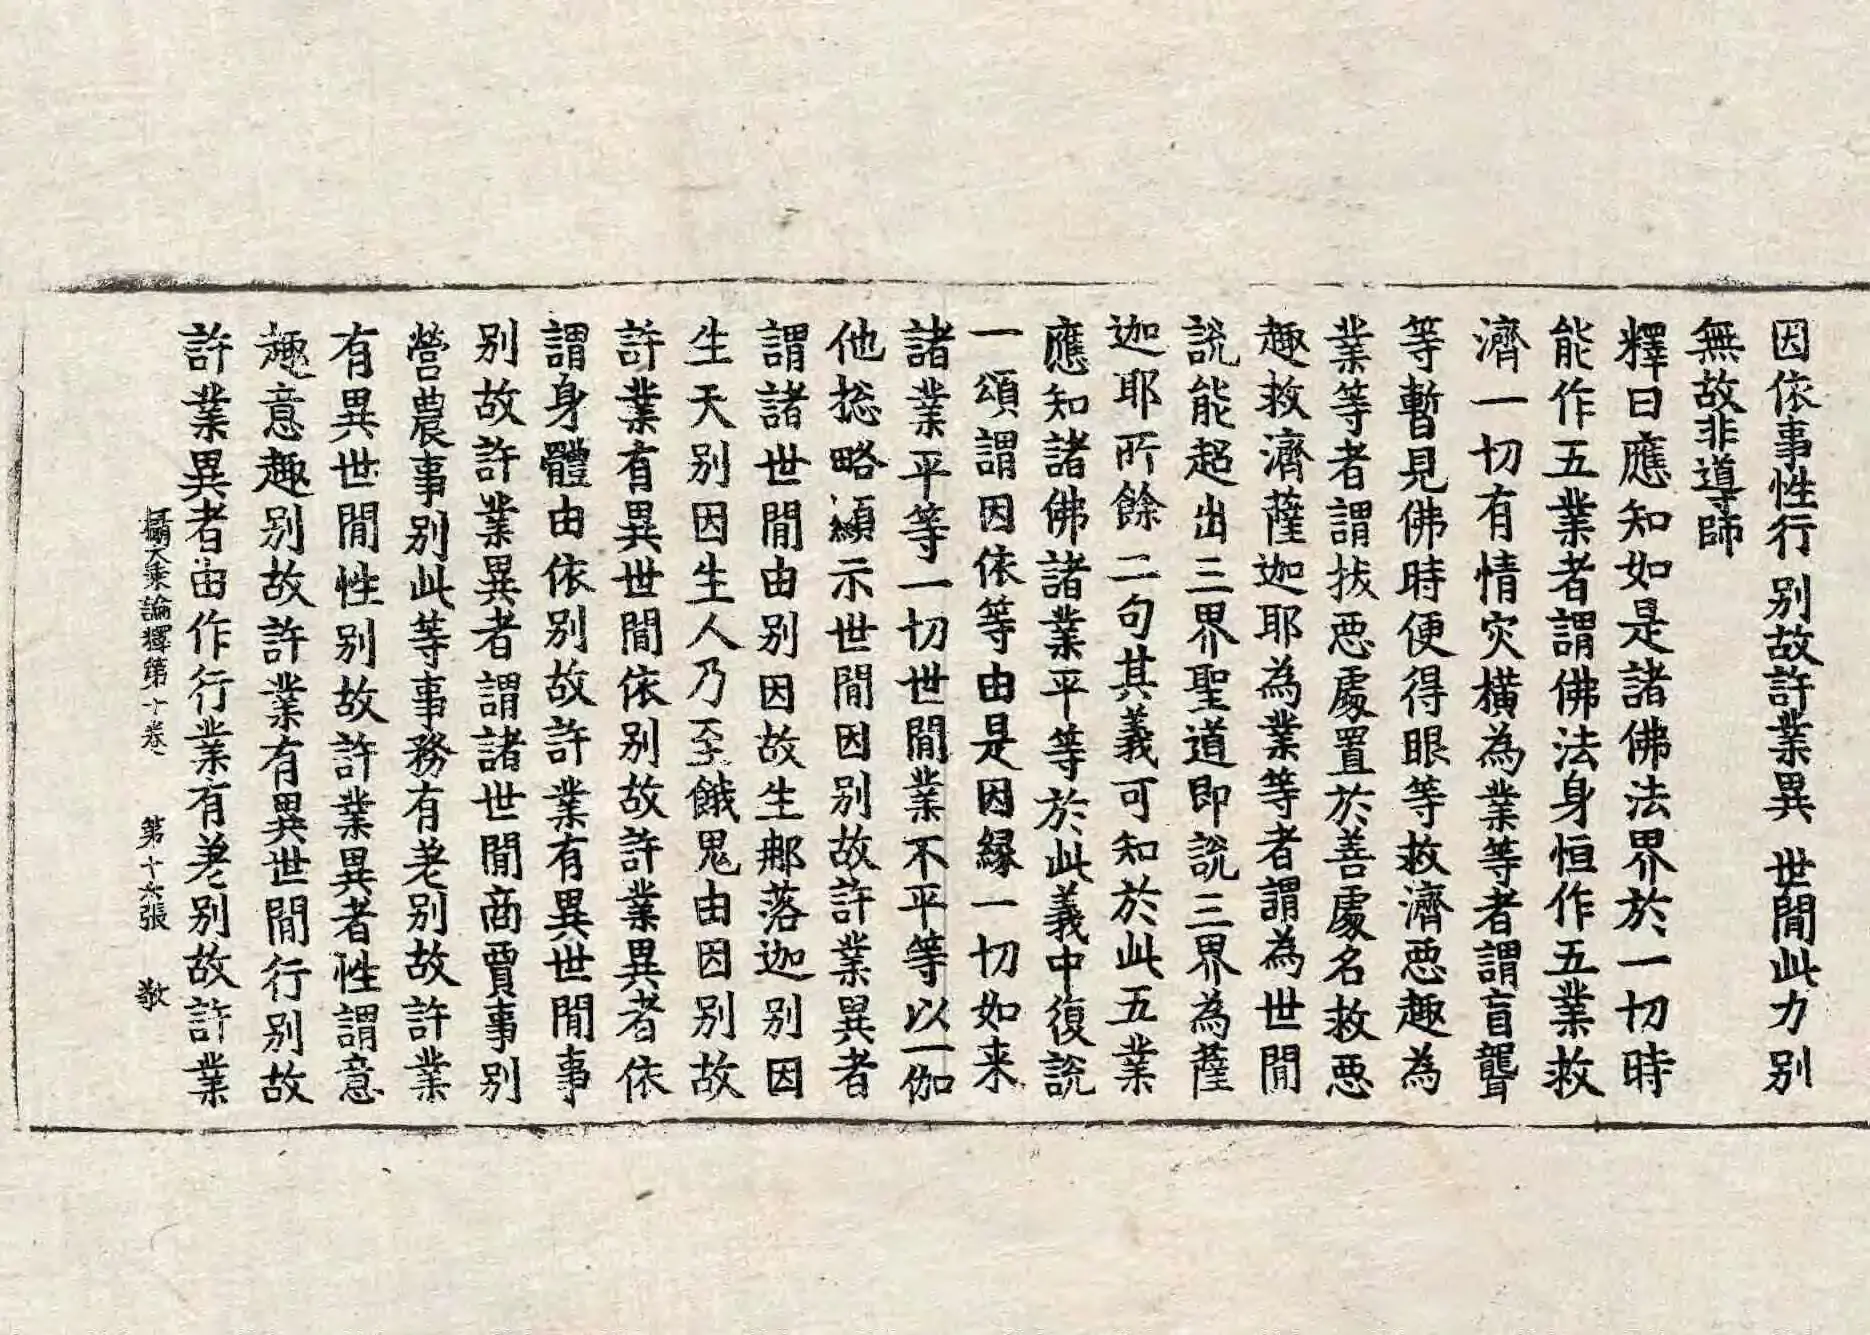 因依事性行　別故許業異　世閒此力別
無故非導師
釋曰應知如是諸佛法界於一切時
能作五業者謂佛法身恒作五業救
濟一切有情灾橫為業等者謂盲聾
等暫見佛時便得眼等救濟惡趣為
業等者謂拔惡處置於善處名救惡
趣救濟薩迦耶為業等者謂為世閒
說能超出三界聖道即說三界為薩
迦耶所餘二句其義可知於此五業
應知諸佛諸業平等於此義中復說
一頌謂因依等由是因緣一切如来
諸業平等一切世閒業不平等以一伽
他捴略顯示世閒因別故許業異者
謂諸世閒由別因故生那落迦別因
生天別因生人乃至餓鬼由因別故
許業有異世閒依別故許業異者依
謂身體由依別故許業有異世閒事
別故許業異者謂諸世閒商賈事別
營農事別此等事務有差別故許業
有異世閒性別故許業異者性謂意
趣意趣別故許業有異世閒行別故
許業異者由作行業有差別故許業
攝大乘論釋第十卷　第十六張　敬